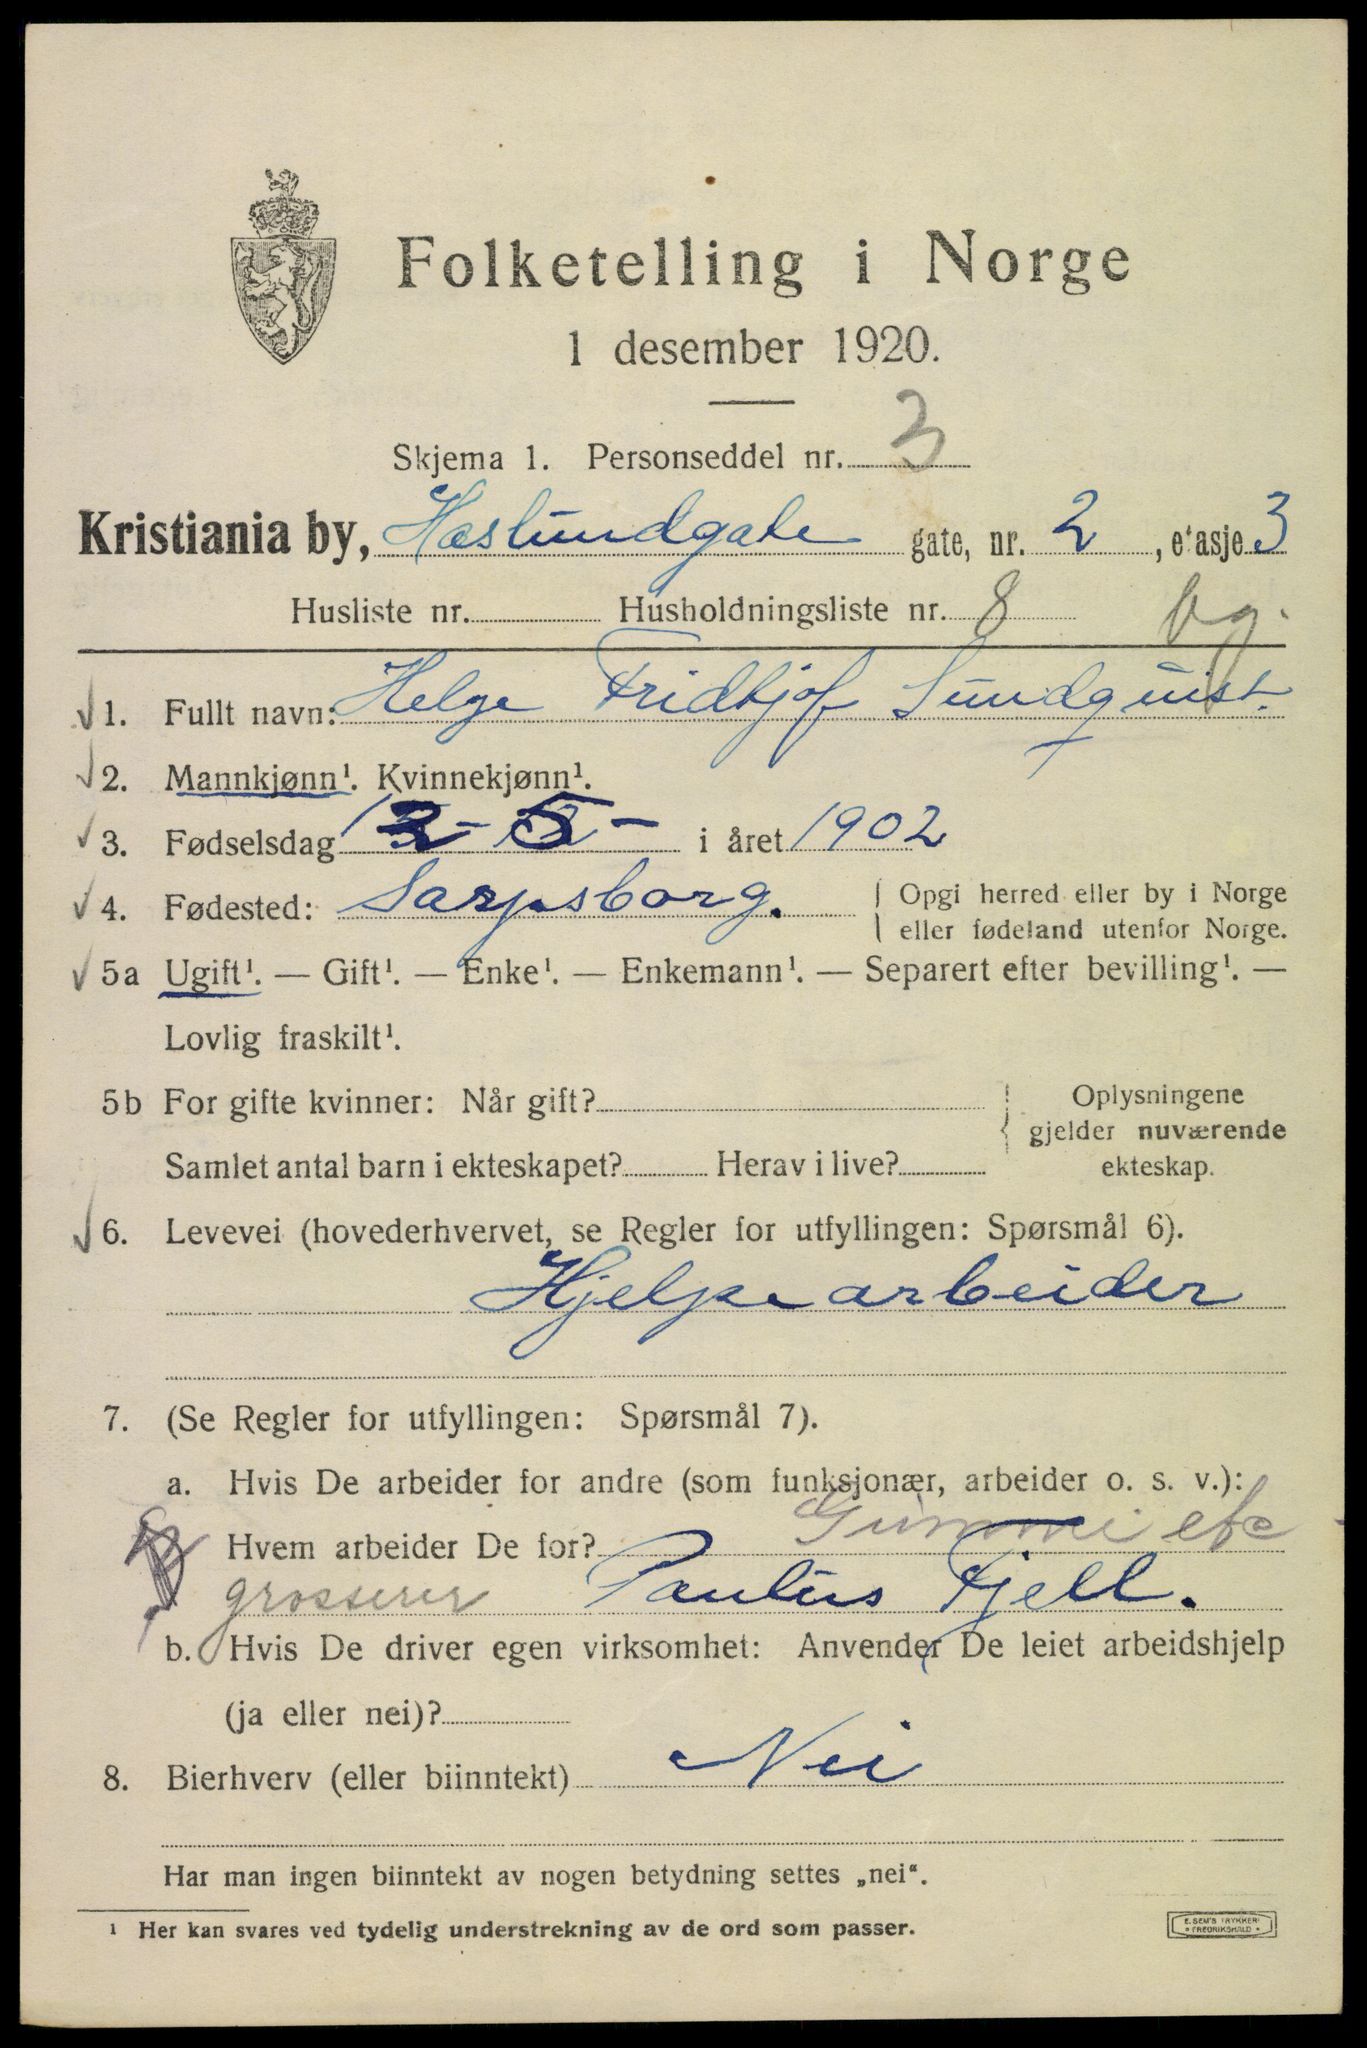 Folketelling i Norge
1 desember 1920.
Skjema 1. Personseddel nr. 3
Kristiania by, Haslundgate gate, nr. 2, etasje 3
Husliste nr. Husholdningsliste nr. 8 bg.
1. Fullt navn: Helge Fridtjof Sundquist.
2. Mannkjønn¹. Kvinnekjønn¹.
3. Fødselsdag 12 - 5 - i året 1902
4. Fødested: Sarpsborg. Opgi herred eller by i Norge
eller fødeland utenfor Norge.
5a Ugift¹. — Gift¹. — Enke¹. — Enkemann¹. — Separert efter bevilling¹. —
Lovlig fraskilt¹.
5b For gifte kvinner: Når gift? Oplysningene
gjelder nuværende
Samlet antal barn i ekteskapet? Herav i live? ekteskap.
6. Levevei (hovederhvervet, se Regler for utfyllingen: Spørsmål 6).
Hjelpearbeider
7. (Se Regler for utfyllingen: Spørsmål 7).
a. Hvis De arbeider for andre (som funksjonær, arbeider o. s. v.):
Hvem arbeider De for? Gummi etc
grosserer Paulus Fjell.
b. Hvis De driver egen virksomhet: Anvender De leiet arbeidshjelp
(ja eller nei)?
8. Bierhverv (eller biinntekt) Nei
Har man ingen biinntekt av nogen betydning settes „nei“.
¹ Her kan svares ved tydelig understrekning av de ord som passer.
E. SEM'S TRYKKERI
FREDRIKSHALD